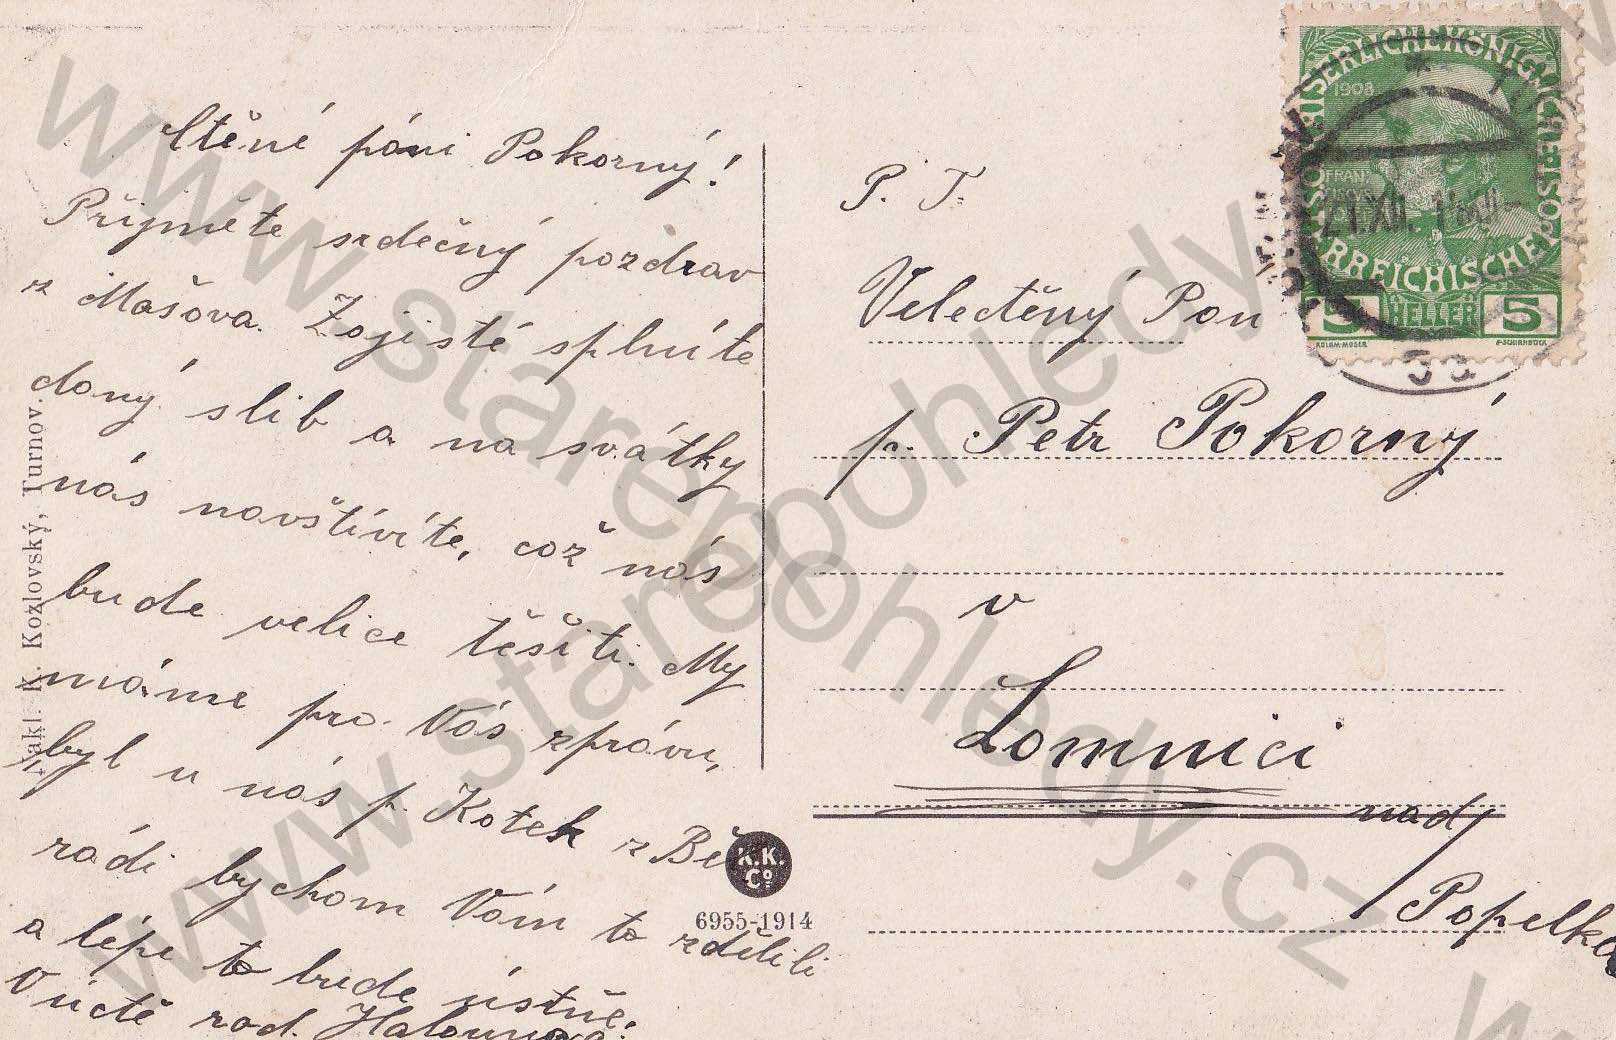 Ctěné páni Pokorný!
Přijměte srdečný pozdrav
z Mašova. Zajisté splníte
daný slib a na svátky
nás navštívíte, což nás
bude velice těšiti. My
máme pro Vás zprávu,
byl u nás p. Kotek z Bě
rádi bychom Vám to zdělili
a lépe to bude ústně.
V úctě rod.
Nakl. K. Kozlovský, Turnov.
K.K.
Co
6955-1914
P. T.
Velectěný Pan
p. Petr Pokorný
v
Lomnici
nad
Popelkou
KAISERLICHE KÖNIGLICHE
ÖSTERREICHISCHE
1908
5 HELLER 5
KOLOM. MOSER F. SCHIRNBÖCK
21.XII.
www.starepohledy.cz
www.starepohledy.cz